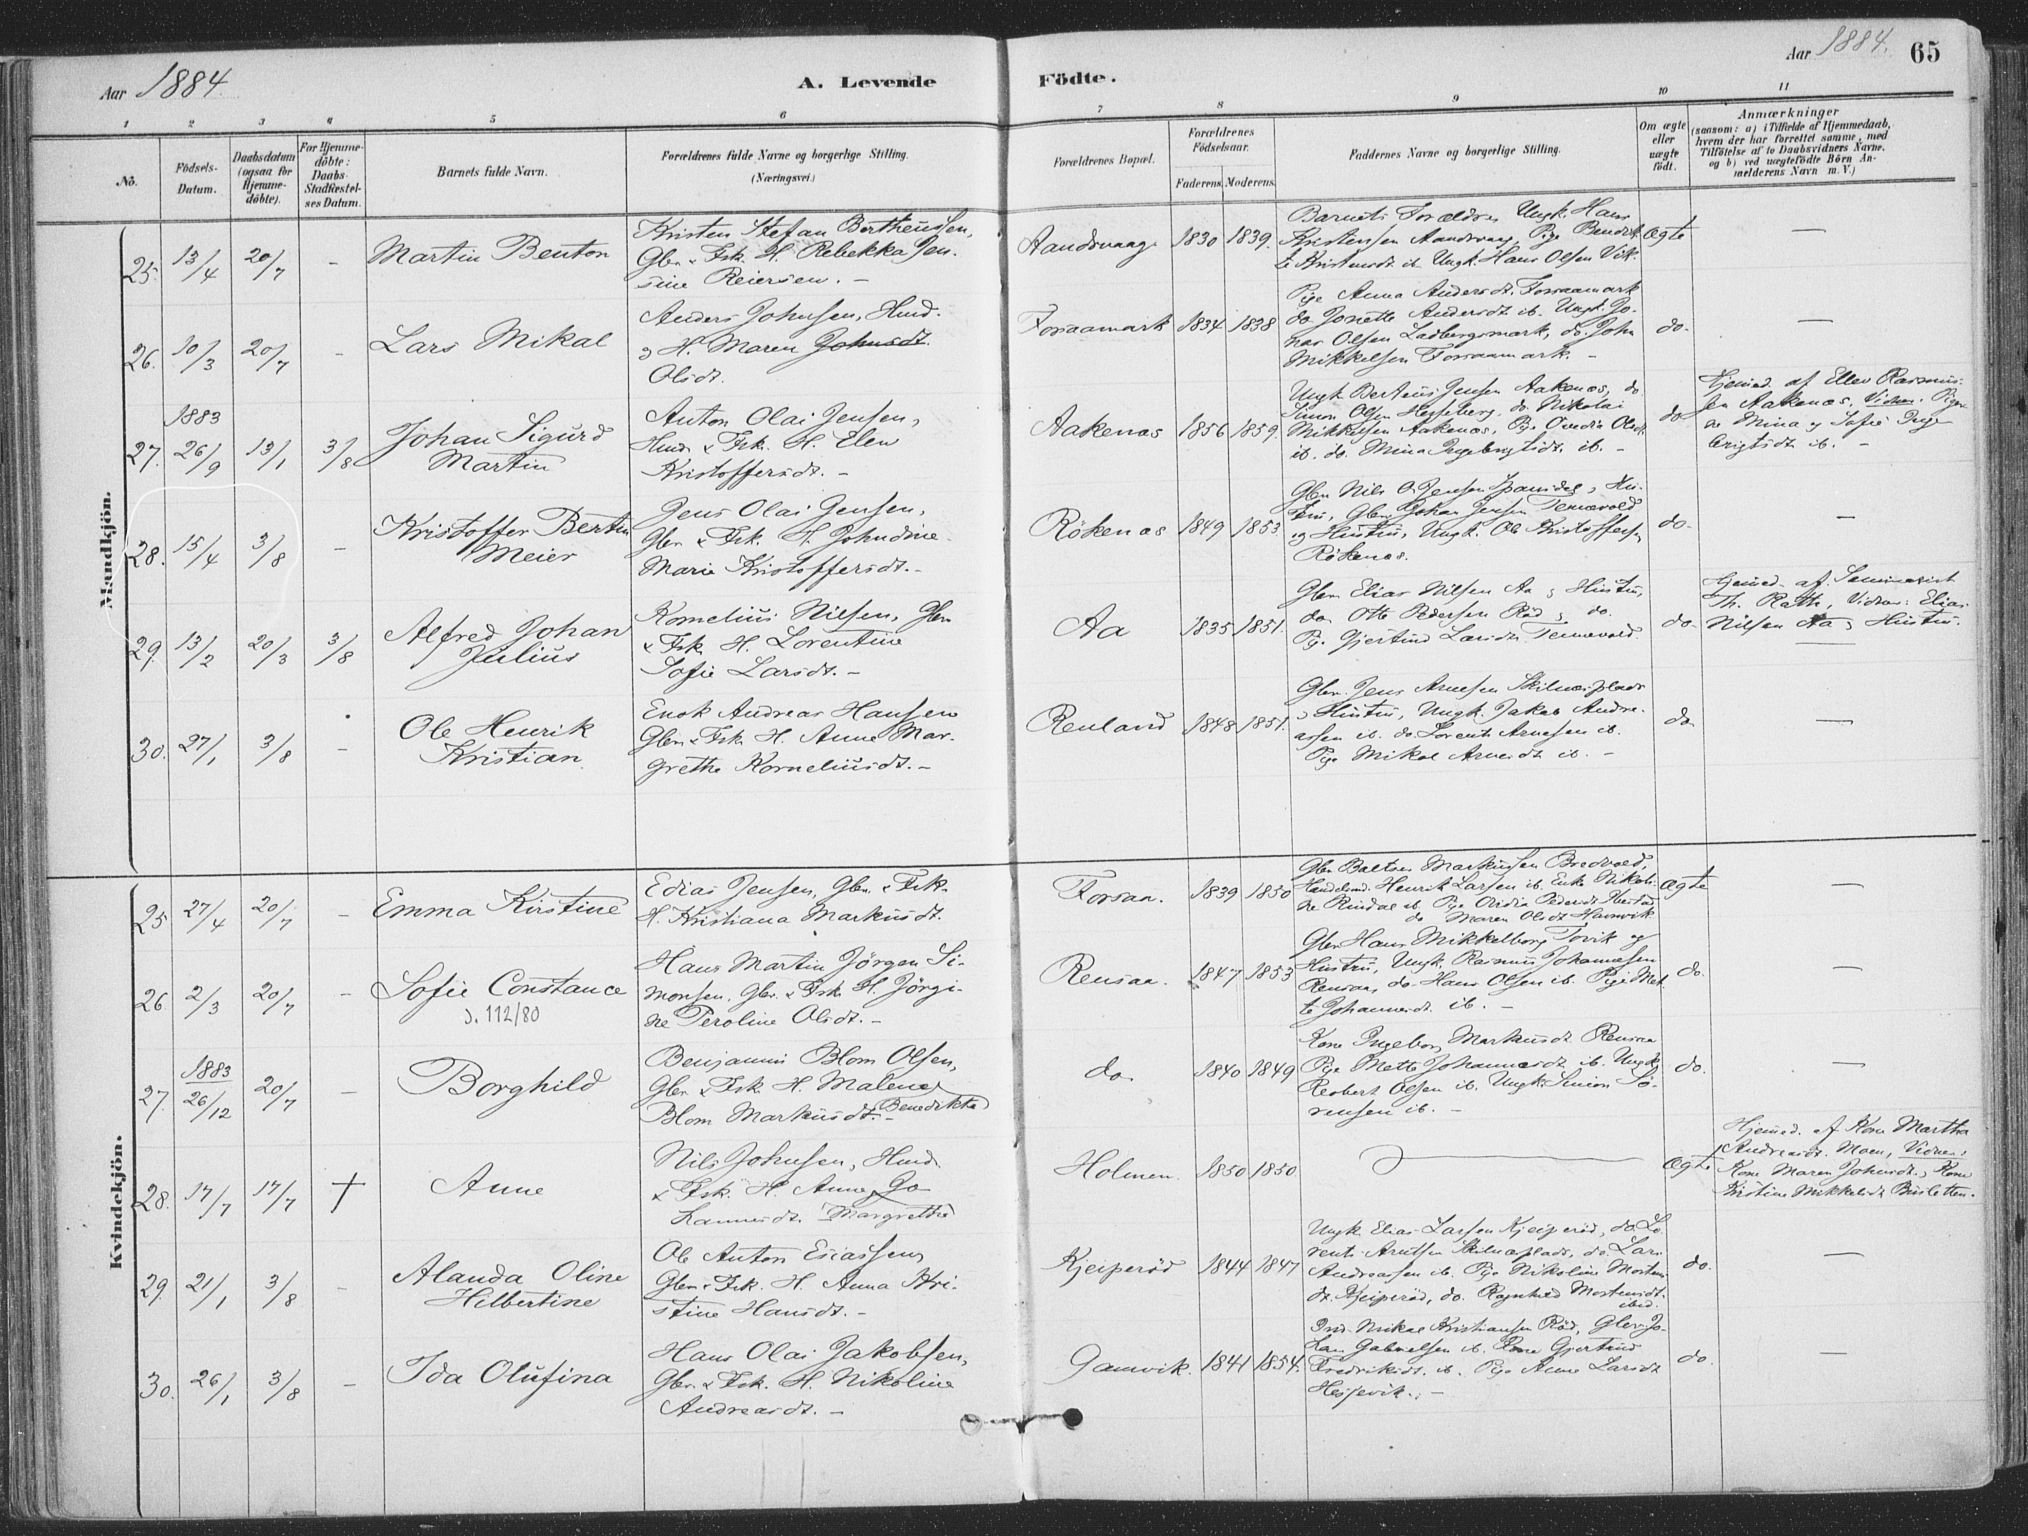 Aar 1884.
A. Levende
Födte.
Aar 1884.
65
1 2 3 4 5 6 7 8 9 10 11
No.
Födsels-
Datum.
Daabsdatum
(ogsaa for
Hjemme-
döbte).
For Hjemme-
döbte:
Daabs-
Stadfæstel-
ses Datum.
Barnets fulde Navn.
Forældrenes fulde Navne og borgerlige Stilling.
(Næringsvei.)
Forældrenes Bopæl.
Forældrenes
Födselsaar.
Faderens. Moderens.
Faddernes Navne og borgerlige Stilling.
Om ægte
eller
uægte
födt.
Anmærkninger
(saasom: a) i Tilfælde af Hjemmedaab,
hvem der har forrettet samme, med
Tilföielse af to Daabsvidners Navne,
og b) ved uægtefödte Börn An-
mælderens Navn m. V.)
Mandkjön.
25. 13/4 20/7 -
Martin Benton
Kristen Stefan Bertheussen,
Gbr. & Fsk. H. Rebekka Jen-
sine Reiersen. -
Aandsvaag 1830 1839.
Barnets Forældre, Ungk. Hans
Kristensen Aandsvaag, Pige Bendik-
te Kristensdt. ib. Ungk. Hans Olsen Vik.
Ægte
—
26. 10/3 20/7 -
Lars Mikal
Anders Johnsen, Hmd.
& H. Maren Johnsdt.
Olsdt.
Forsaamark 1834 1838
Pige Anna Andersdt. Forsaamark
do Jonette Andersdt. ib. Ungk. Jo-
nas Olsen Ladbergsmark, do. John
Mikkelsen Forsaamark. -
do.
—
27. 1883 26/9 13/1 3/8
Johan Sigurd
Martin
Anton Olai Jensen,
Hmd. & Fsk. H. Elen
Kristoffersdt. -
Aakenæs 1856 1859.
Ungk. Berteus Jensen Aakenæs, do.
Simon Olsen Hesseberg, do. Nikolai
Mikkelsen Aakenæs, Pige Ovedia Olsdt.
ib. do. Mina Ingebrigtsdt. ib. -
do
Hjemmed. af Ellev Rasmus-
sen Aakenæs, Vidner: Piger-
ne Mina & Sofie Inge-
brigtsdt. ib. -
28. 15/4 3/8 -
Kristoffer Bertin
Meier
Jens Olai Jensen,
Gbr. & Fsk. H. Johndine
Marie Kristoffersdt. -
Rökenæs 1849 1853
Gbr. Nils O. Jensen Spansdal & Hu-
stru, Gbr. Johan Jensen Tennevold
og Hustru, Ungk. Ole Kristoffersen
Rökenæs.
do.
—
29. 13/2 20/3 3/8
Alfred Johan
Julius
Kornelius Nilsen, Gbr.
& Fsk. H. Lorentine
Sofie Larsdt. -
Aa 1835 1851.
Gbr. Elias Nilsen Aa & Hustru,
do Otto Pedersen Röd & do.
Pige Gjertine Larsdt. Tennevold.
do
Hjemmed. af Seminarist
Th. Rath, Vidner: Elias
Nilsen Aa & Hustru.
—
30. 27/1 3/8 -
Ole Henrik
Kristian
Enok Andreas Hansen
Gbr. & Fsk. H. Anne Mar-
grethe Korneliusdt. -
Renland 1848 1851.
Gbr. Jens Arnesen Skilnæsplads
& Hustru, Ungk. Jakob Andre-
assen ib. do. Lorents Arnesen ib.
Pige Mikal Arnesdt. ib. -
do
—
Kvindekjön.
25 27/4 20/7 -
Emma Kirstine
Edias Jensen, Gbr. & Fsk.
H. Kristiana Markusdt.
Forsaa. 1839 1850
Gbr. Baltser Markussen Bredvold,
Handelsmd. Henrik Larsen ib. Enke Nikoli-
ne Rindal ib. Pige Ovidia Pedersdt. Ibestad
do Maren Olsdt. Hamnvik
Ægte
—
26. 2/3 20/7 -
Sofie Constance
d. 112/80
Hans Martin Jörgen Si-
monsen, Gbr. & Fsk. H. Jörgi-
ne Peroline Olsdt. -
Rensaa. 1847 1853
Gbr. Hans Mikkelborg Tovik og
Hustru, Ungk. Rasmus Johannesen
Rensaa, do. Hans Olsen ib. Pige Met-
te Johannesdt. ib. -
do.
—
27. 1883 26/12 20/7 -
Borghild
Benjamin Blom Olsen,
Gbr. & Fsk. H. Malene
Benedikte
Blom Markusdt. -
do 1840 1849
Kone Ingeborg Markusdt. Rensaa
Pige Mette Johannesdt. ib. Ungk.
Reobert Olsen ib. Ungk. Simon Sö-
rensen ib. -
do.
—
28. 17/7 17/7 †
Anne
Nils Johnsen, Hmd.
& Fsk. H. Anne Jo-
hannesdt. Margrethe
Holmen. 1850 1850
Ægte
Hjemmed. af Kone Martha
Andreasdt. Moen, Vidner:
Kone Maren Johnsdt. & Kone
Kristine Mikkelsdt. Buslettten.
29. 21/1 3/8 -
Alanda Oline
Hilbertine
Ole Anton Eliassen,
Gbr. & Fsk. H. Anna Kri-
stine Hansdt. -
Kjeiperöd 1844 1847
Ungk. Elias Larsen Kjeiperöd, do. Lo-
rents Arntsen Skilnæsplads, do. Lars
Andreassen ib. Pige Nikoline Mortens-
dt. Kjeiperöd, do. Ragnhild Mortensdt.
ibid.
do.
—
30. 26/1 3/8 -
Ida Olufina
Hans Olai Jakobsen,
Gbr. & Fsk. H. Nikoline
Andreasdt. -
Gamvik. 1841 1854.
Ind. Mikal Kristiansen Röd, Gbr. Jo-
han Gabrielsen ib. Kone Gjertine
Fredriksdt. ib. Pige Anne Larsdt.
Hesjevik. -
do.
—